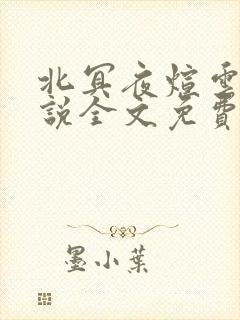 北冥夜煊雲
説全文免費
墨小葉